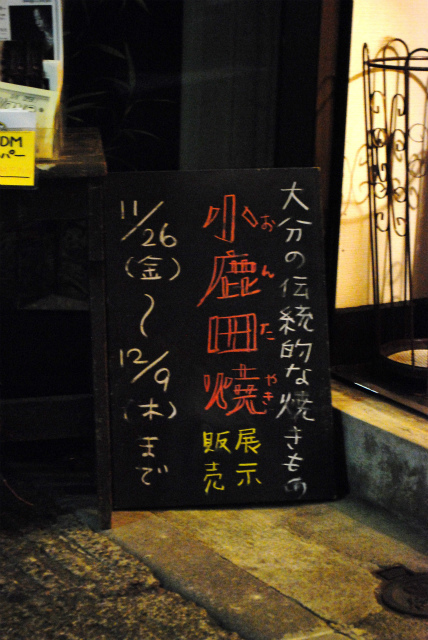 大分の伝統的な焼きもの
小鹿田焼
おんたやき
展示
販売
11/26
(金)
〜
12/9
(木)
まで
DM
パー